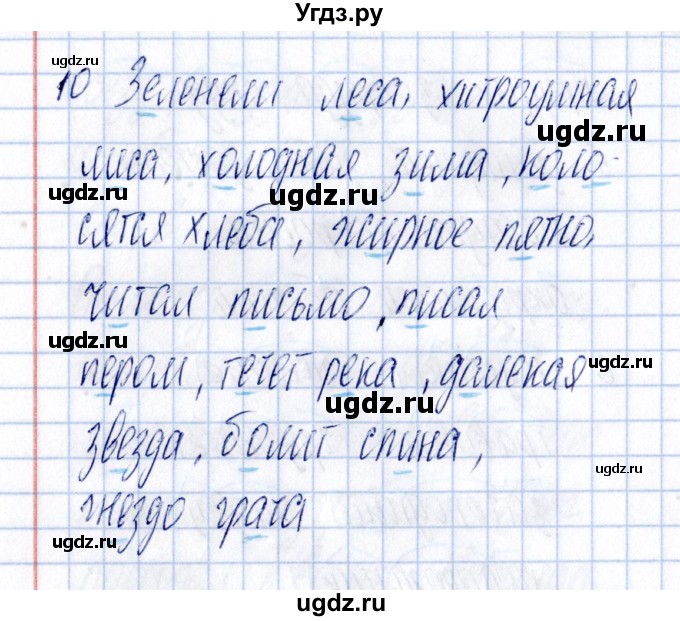 Угдз.ру
10 Зеленели леса, хитроумная
лиса, холодная зима, коло-
сятся хлеба, жирное пятно,
читал письмо, писал
пером, течет река, далекая
звезда, болит спина,
гнездо грача
ugdz.ru
ugdz.ru
ugdz.ru
ugdz.ru
ugdz.ru
ugdz.ru
ugdz.ru
ugdz.ru
ugdz.ru
ugdz.ru
ugdz.ru
ugdz.ru
ugdz.ru